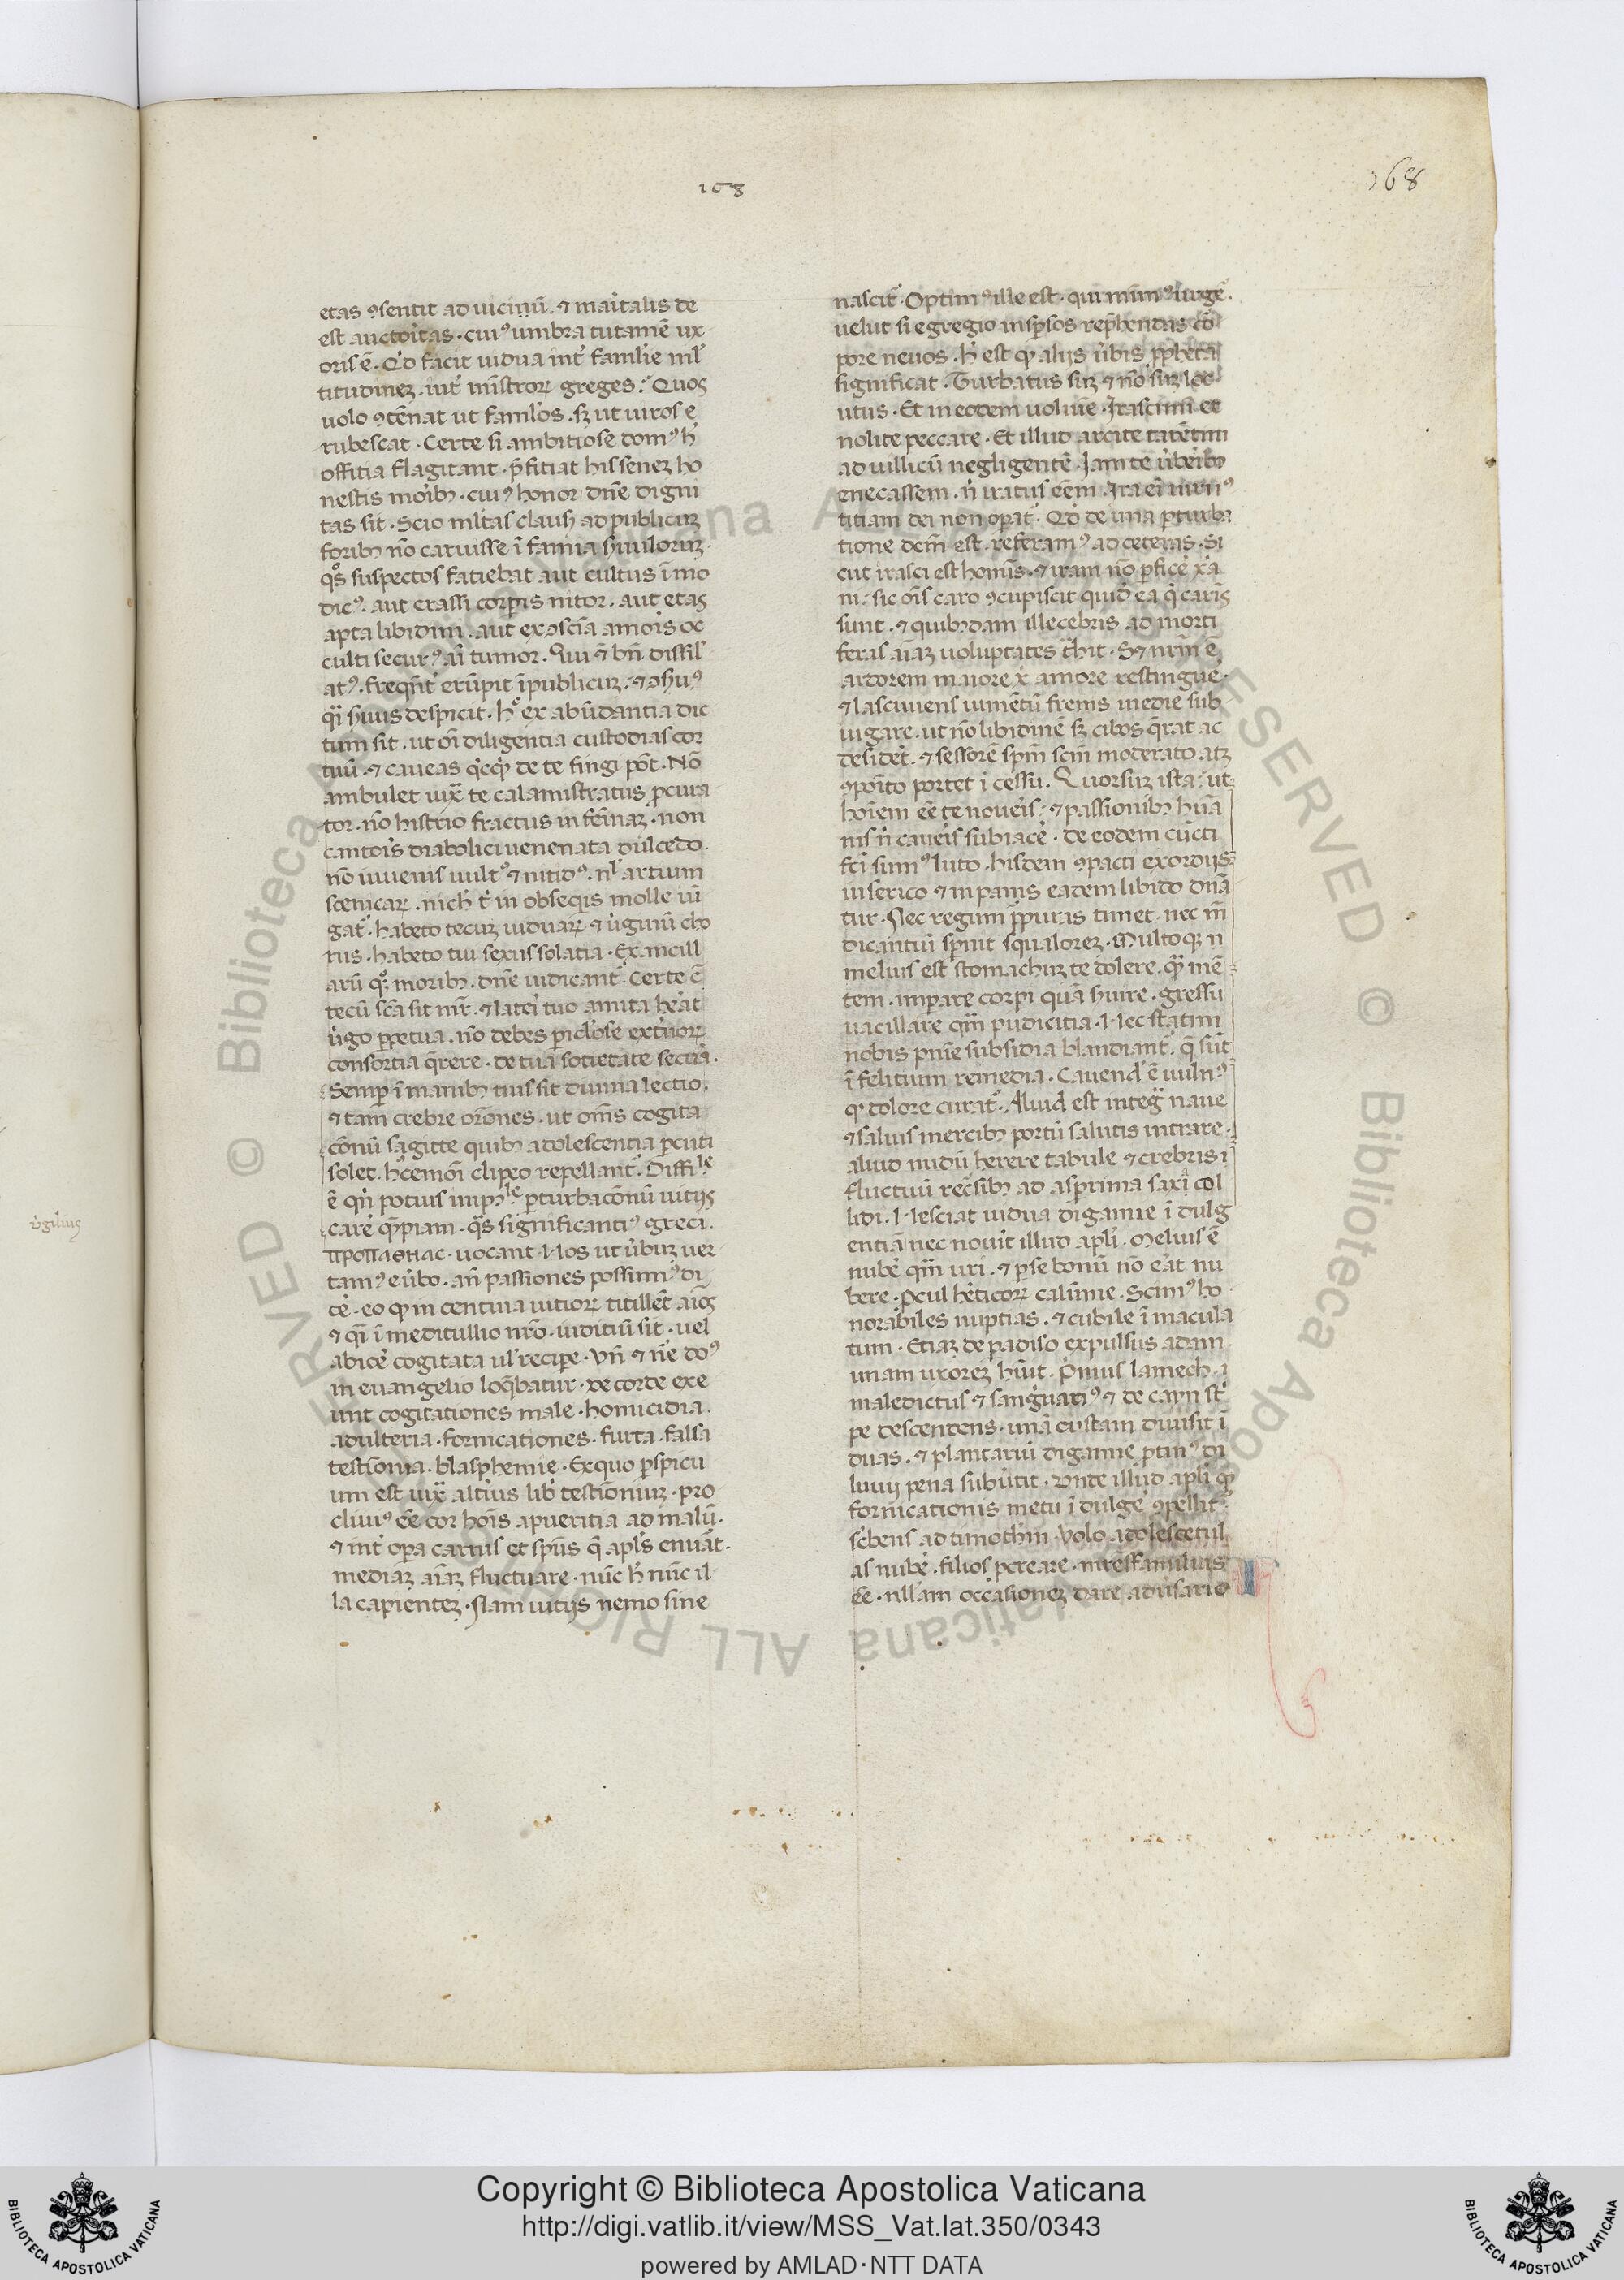 168
168
etas ꝯsentit ad uicinũ. ⁊ maritalis de
est auctoritas. cuiꝰ umbra tutamẽ ux
oris ẽ. Qď facit uidua int̾ familie ml̾
titudineꝫ. int̾ mĩstroꝝ greges? Quos
uolo ꝯtẽnat ut famlos. sꝫ ut uiros e
rubescat. Certe si ambitiose domꝰ h̾
offitia flagitant. p̃fitiat his seneꝫ ho
nestis morib̾. cuiꝰ honor dñe digni
tas sit. Scio ml̾tas clausis ad publicuꝫ
forib̾ nõ caruisse ĩfamia s̾uuloruꝫ.
qͦs suspectos fatiebat aut cultus ĩmo
dicꝰ. aut crassi corꝑis nitor. aut etas
apta libidini. aut ex ꝯscĩa amoris oc
culti securꝰ aĩ tumor. Qui ⁊ bñ dissil̾
atꝰ. freqñt̾ erũpit ĩ publicuꝫ. ⁊ ꝯs̾uꝰ
qͣi s̾uus despicit. h̾ ex abũdantia dic
tum sit. ut oĩ diligentia custodias cor
tuũ. ⁊ caueas qͥcqͥd de te fingi põt. Nõ
ambulet iuxͣ te calamistratus ꝓcura
tor. nõ histrio fractus in fẽinaꝫ. non
cantoris diabolici uenenata dulcedo.
nõ iuuenis uultꝰ ⁊ nitidꝰ. nl̾ artium
scenicaꝝ. nich̾ t̾ in obsequiis molle iũ
gat̾. habeto tecuꝫ uiduaꝝ ⁊ ũginũ cho
rus. habeto tui sexus solatia. Ex ancill
arũ qͦꝫ morib̾. dñe iudicant̾. Certe c̃
tecũ scã sit mr̃. ⁊ lateri tuo amita heat
ũgo ꝑpetua. nõ debes ꝑiclose ext̾noꝝ
consortia q̃rere. de tua sotietate secura.
Semꝑ ĩ manib̾ tuis sit diuina lectio.
⁊ tam crebre orõnes. ut om̃s cogita
cõnũ sagitte quib̾ adolescentia ꝑcuti
solet. hͨcemõi clipeo repellant̾. Diffiˡᵉ
ẽ qñ potius impͦˡᵉ ꝑturbacõnũ uitiis
care̾ qͥp̃piam. qͣs significantiꝰ greci.
ΠΡΟΠΑΘΗΑC. uocant. Nos ut ũbuꝫ uer
tamꝰ e ũbo. añ passiones possimꝰ di
ce̾. eo qͩ in centiua uitioꝝ titillẽt aĩos
⁊ qͣi ĩ meditullio nr̃o. iuditiũ sit. uel
abice̾ cogitata ul̾ recipe. Vñ ⁊ ñe doꝰ
in euangelio loq̃batur. De corde exe
unt cogitationes male. homicidia.
adulteria. fornicationes. furta. falsa
testĩonia. blasphemie. Ex quo ꝑspicu
um est iuxͣ altius lib̾ testĩoniuꝫ. pro
cliuiꝰ eẽ cor hoĩs a pueritia ad malũ.
⁊ int̾ oꝑa carnis et sp̃us q̃ apl̾s enũat.
mediaꝫ aĩaꝫ fluctuare. nũc h̾ nũc il
la capienteꝫ. Nam uitijs nemo sine
nascit̾. Optimꝰ ille est. qui minimꝰ urge̾.
uelut si egregio insꝑsos rep̃hendas cõ
pore neuos. h̾ est qͩ alijs ũbis ꝓph̾eta
significat. Turbatus suꝫ ⁊ nõ suꝫ loc
utus. Et in eodem uoluĩe. Irascimĩ et
nolite peccare. Et illud arcite tarẽtini
ad uillicũ negligentẽ. Iam te ũberib̾
enecassem. n̾ iratus eẽm. Ira eĩ uirꝰ
titiam dei non oꝑat̾. Qď de una ꝑturba
tione dcm̃ est. referamꝰ ad ceteras. Si
cut irasci est homĩs. ⁊ iram nõ ꝑfice̾ xͣa
ni: sic oĩs caro ꝯcupiscit quid̾ ea q̃ carnis
sunt. ⁊ quib̾dam illecebris ad morti
feras aĩaꝫ uoluptates tͣhit. Sꝫ nr̃m ẽ
ardorem maiore xͥ amore restingue̾.
⁊ lasciuiens iumẽtũ frenis inedie sub
iugare. ut nõ libidinẽ sꝫ cibos q̃rat ac
deside̾t. ⁊ sessorẽ spm̃ scm̃ moderato atꝫ
ꝯposito portet ĩcessu. Quorsuꝫ ista? ut
hoĩem eẽ te noueris. ⁊ passionib̾ hũa
nis n̾ caueris subiace̾. de eodem cũcti
fc̃i sumꝰ luto. hisdem ꝯpacti exordijs.
in serico ⁊ in pannis eadem libido dñã
tur. Nec regum ꝑpuras timet. nec m̃
dicantiũ sꝑnit squaloreꝫ. Multoqꝫ n̾
melius est stomachuꝫ te dolere. qͣꝫ mẽ
tem. imꝑare corpi quã s̾uire. gressu
uacillare qͣꝫ pudicitia. Nec statim
nobis pnĩe subsidia blandiant̾. q̃ sũt
ĩfelitium remedia. Cauendͧ ẽ uulnꝰ
qͩ dolore curat̾. Aliud est integ̾ naue
⁊ saluis mercib̾ portũ salutis intrare.
aliud nudũ herere tabule ⁊ crebris ĩ
fluctuũ recͥsib̾ ad asꝑrima saxͣ col
lidi. Nesciat uidua digamie ĩdulg
entiã nec nouit illud apl̾i. Melius ẽ
nube̾ qͣꝫ uri. ⁊ ꝑ se bonũ nõ eͣt nu
bere. Ꝓcul h̾eticoꝝ calũnie. Scimꝰ ho
norabiles nuptias. ⁊ cubile ĩmacula
tum. Etiaꝫ de padiso expulsus adam
unam uxoreꝫ hũit. Pͥmus lamech. ĩ
maledictus ⁊ sanguariꝰ ⁊ de cayn st̾
pe descendens. unã custam diuisit ĩ
duas. ⁊ plantariũ digamie ꝓtinꝰ di
luuij pena subuertit. Vnde illud apl̾i qͩ
fornicationis metu ĩdulge̾ ꝯpellit̾
sc̾bens ad timothm̃. Volo adolescẽtul
as nube̾. filios ꝓcreare. mr̃esfamilias
eẽ. nll̾am occasioneꝫ dare adũsario
ũgilius
Copyright © Biblioteca Apostolica Vaticana
http://digi.vatlib.it/view/MSS_Vat.lat.350/0343
powered by AMLAD·NTT DATA
BIBLIOTECA APOSTOLICA VATICANA
BIBLIOTECA APOSTOLICA VATICANA